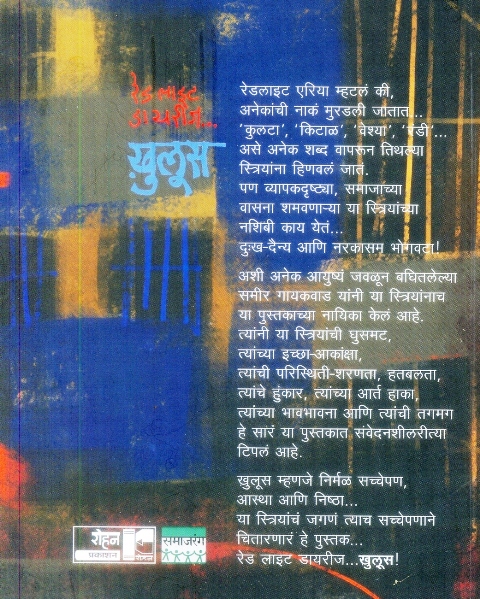 रेड लाइट
डायरीज...
ख़ुलूस
रेडलाइट एरिया म्हटलं की,
अनेकांची नाकं मुरडली जातात...
'कुलटा', 'किटाळ', 'वेश्या', 'रंडी'...
असे अनेक शब्द वापरून तिथल्या
स्त्रियांना हिणवलं जातं.
पण व्यापकदृष्ट्या, समाजाच्या
वासना शमवणाऱ्या या स्त्रियांच्या
नशिबी काय येतं...
दुःख-दैन्य आणि नरकासम भोगवटा!
अशी अनेक आयुष्यं जवळून बघितलेल्या
समीर गायकवाड यांनी या स्त्रियांनाच
या पुस्तकाच्या नायिका केलं आहे.
त्यांनी या स्त्रियांची घुसमट,
त्यांच्या इच्छा-आकांक्षा,
त्यांची परिस्थिती-शरणता, हतबलता,
त्यांचे हुंकार, त्यांच्या आर्त हाका,
त्यांच्या भावभावना आणि त्यांची तगमग
हे सारं या पुस्तकात संवेदनशीलरीत्या
टिपलं आहे.
ख़ुलूस म्हणजे निर्मळ सच्चेपण,
आस्था आणि निष्ठा...
या स्त्रियांचं जगणं त्याच सच्चेपणाने
चितारणारं हे पुस्तक...
रेड लाइट डायरीज...ख़ुलूस!
रोहन
प्रकाशन
समाजरंग